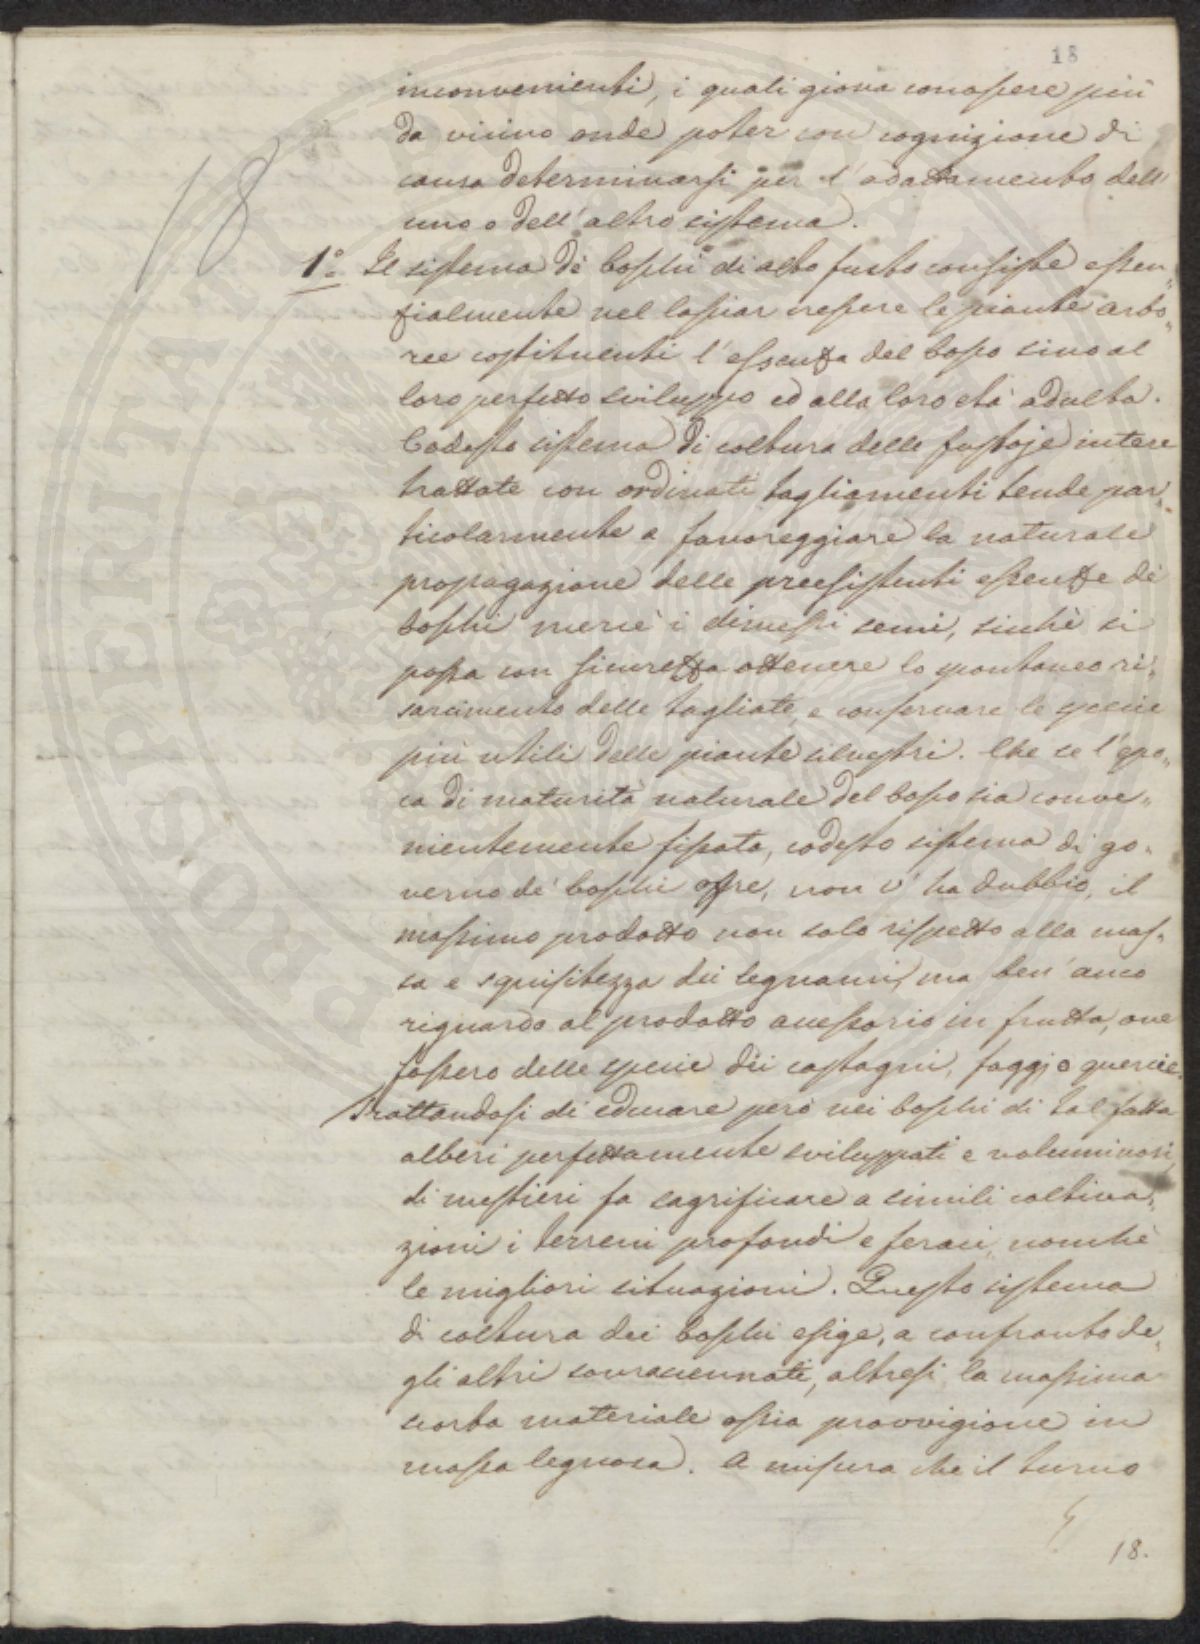 18
inconvenienti, i quali giova conoscere più
da vicino onde poter con cognizione di
causa determinarsi per l'adattamento dell'
uno o dell'altro sistema.
18
1º Il sistema de' boschi di alto fusto consiste essen„
zialmente nel lasciar crescere le piante arbo„
ree costituenti l'essenza del bosco sino al
loro perfetto sviluppo ed alla loro età adulta.
Codesto sistema di coltura delle fustaje intere
trattate con ordinati tagliamenti tende par„
ticolarmente a favoreggiare la naturale
propagazione delle preesistenti essenze de'
boschi mercè i dimessi semi, sinchè si
possa con sicurezza ottenere lo spontaneo ri„
sarcimento delle tagliate, e conservare le specie
più utili delle piante silvestri. Che se l'epo„
ca di maturità naturale del bosco sia conve„
nientemente fissata, codesto sistema di go„
verno de' boschi offre, non v'ha dubbio, il
massimo prodotto non solo rispetto alla mas„
sa e squisitezza dei legnami, ma ben'anco
riguardo al prodotto accessorio in frutta, ove
fossero delle specie dei castagni, faggi o quercie.
Trattandosi di educare però nei boschi di tal fatta
alberi perfettamente sviluppati e voluminosi
di mestieri fa sagrificare a simili coltiva„
zioni i terreni profondi e feraci, nonchè
le migliori situazioni. Questo sistema
di coltura dei boschi esige, a confronto de„
gli altri sovraccennati, altresì la massima
scorta materiale ossia provvigione in
massa legnosa. A misura che il turno
18.
PROSPERITATI PUBLICAE